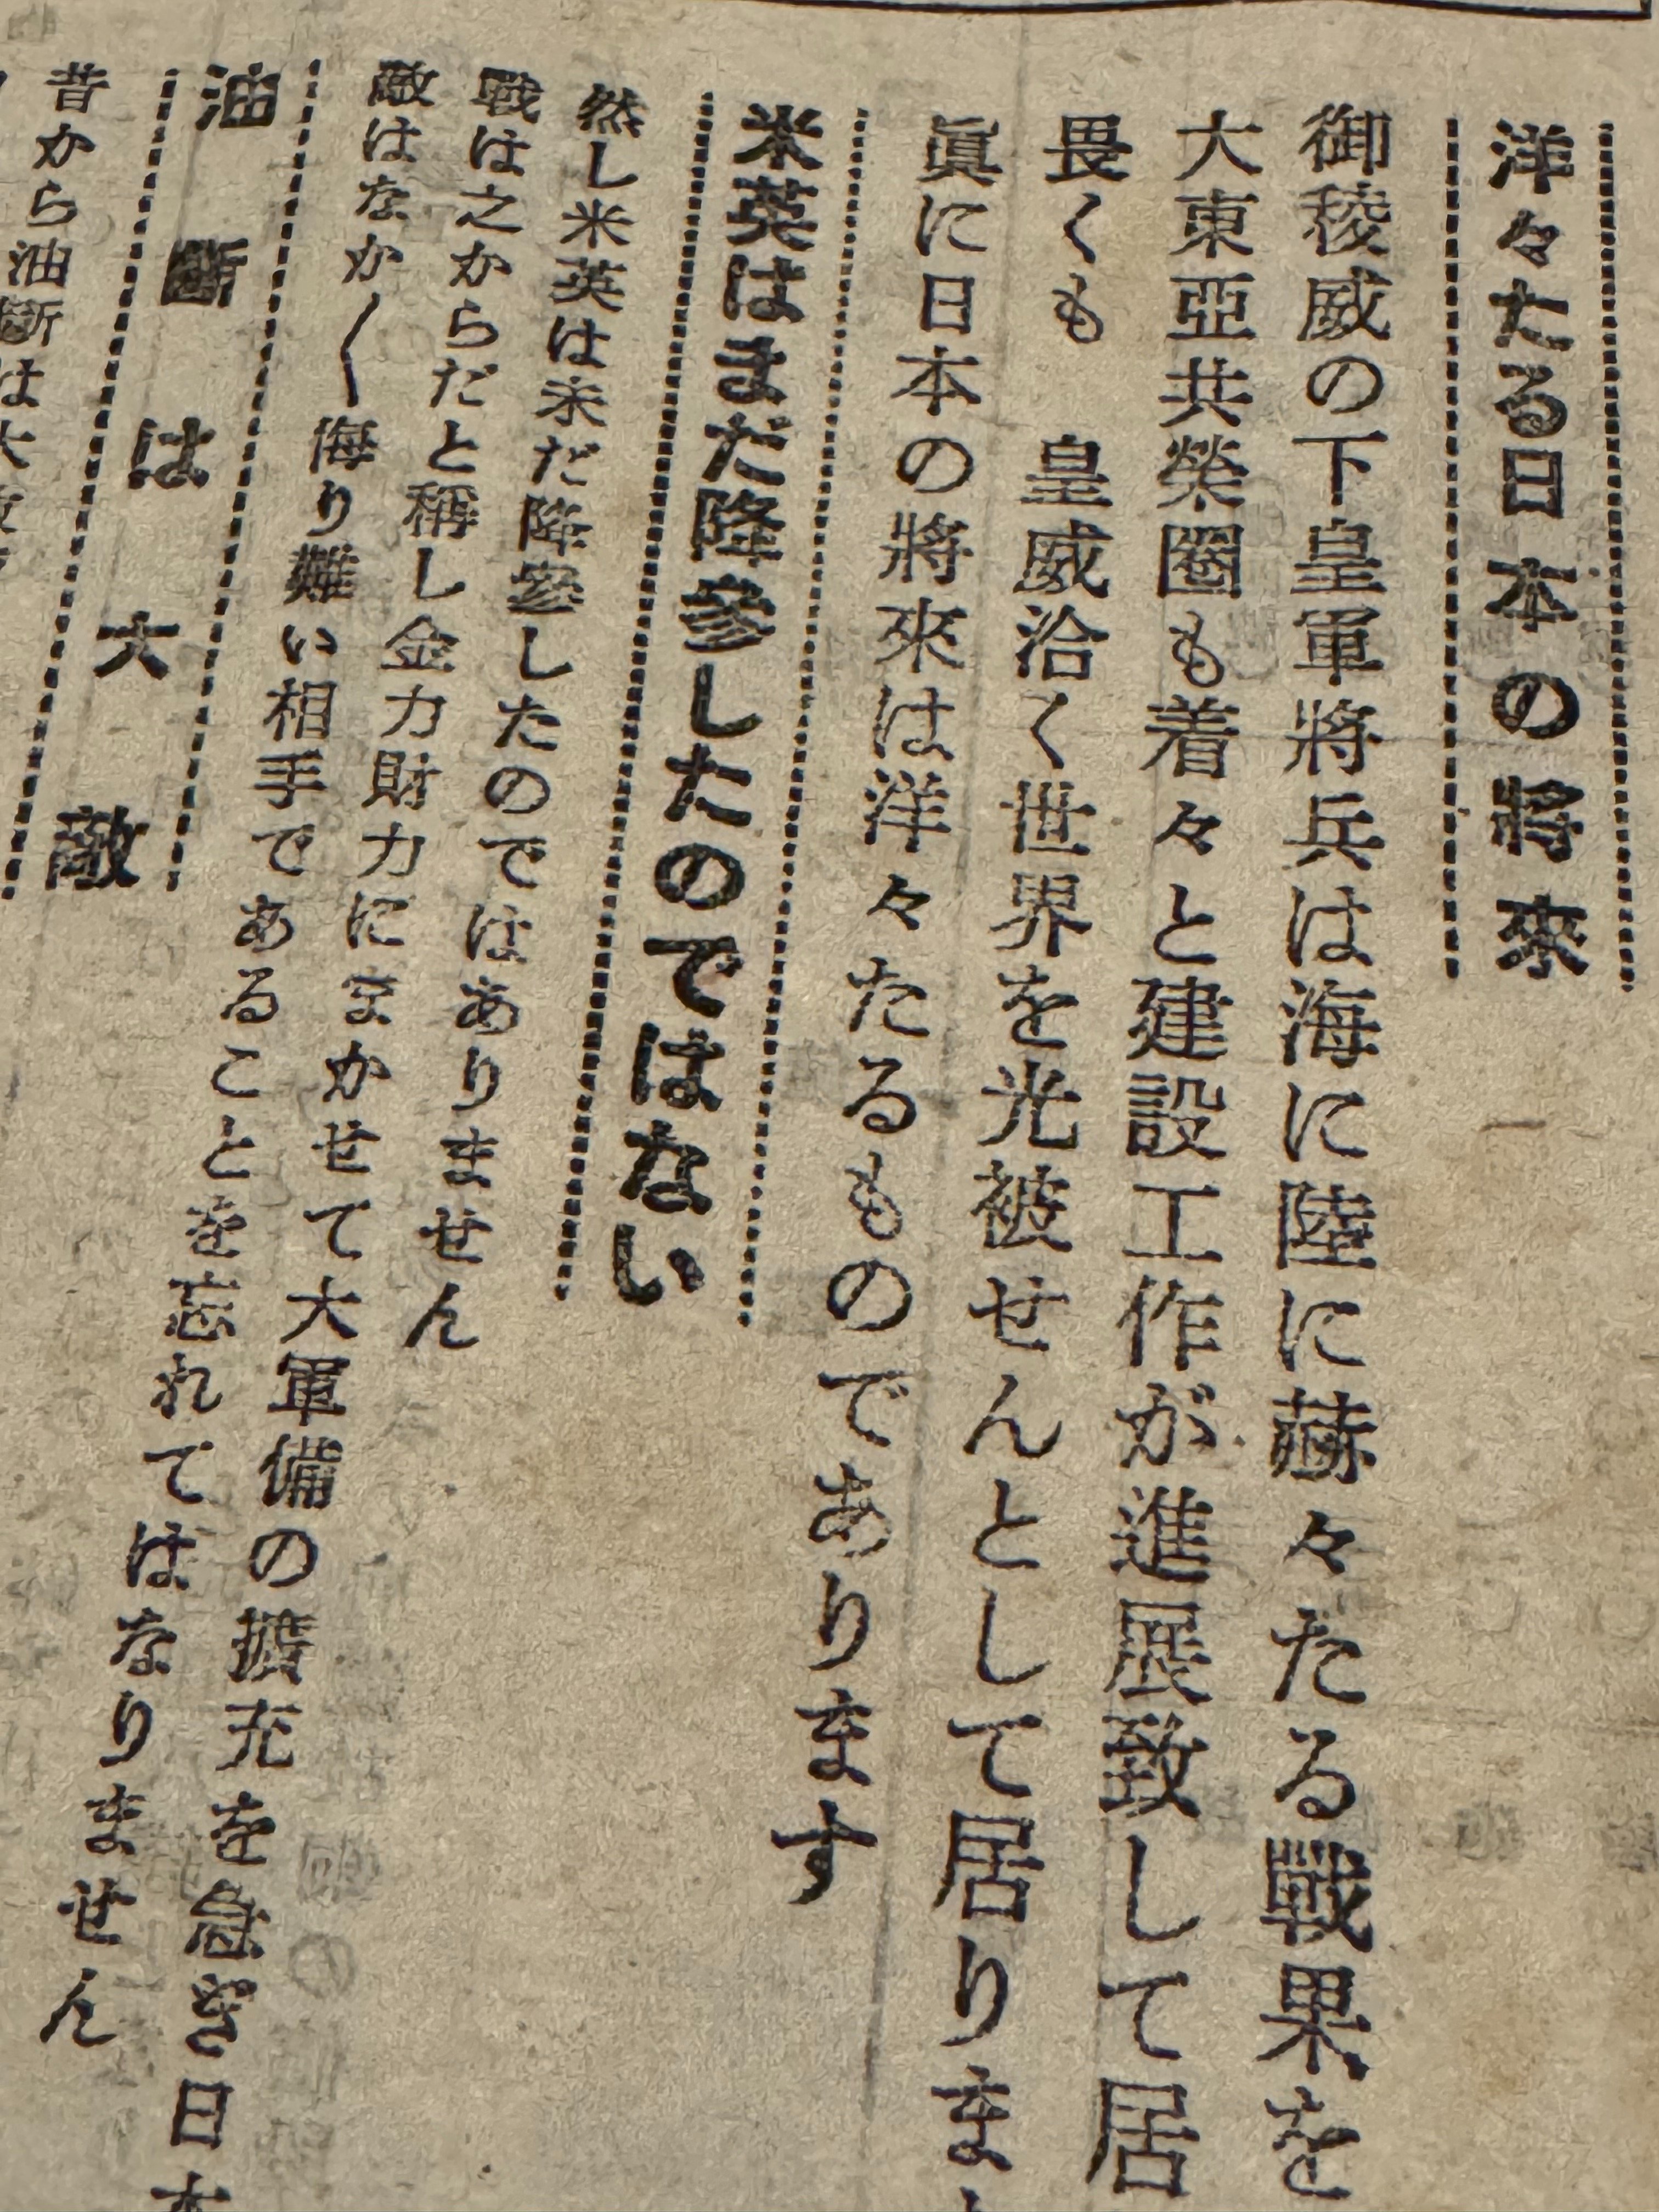 洋々たる日本の將來
御稜威の下皇軍將兵は海に陸に赫々たる戰果を
大東亞共榮圈も着々と建設工作が進展致して居
畏くも　皇威洽く世界を光被せんとして居りま
眞に日本の將來は洋々たるものであります
米英はまだ降參したのではない
然し米英は未だ降參したのではありません
戰は之からだと稱し金力財力にまかせて大軍備の擴充を急ぎ日本
敵はなか〱侮り難い相手であることを忘れてはなりません
油斷は大敵
昔から油斷は大敵